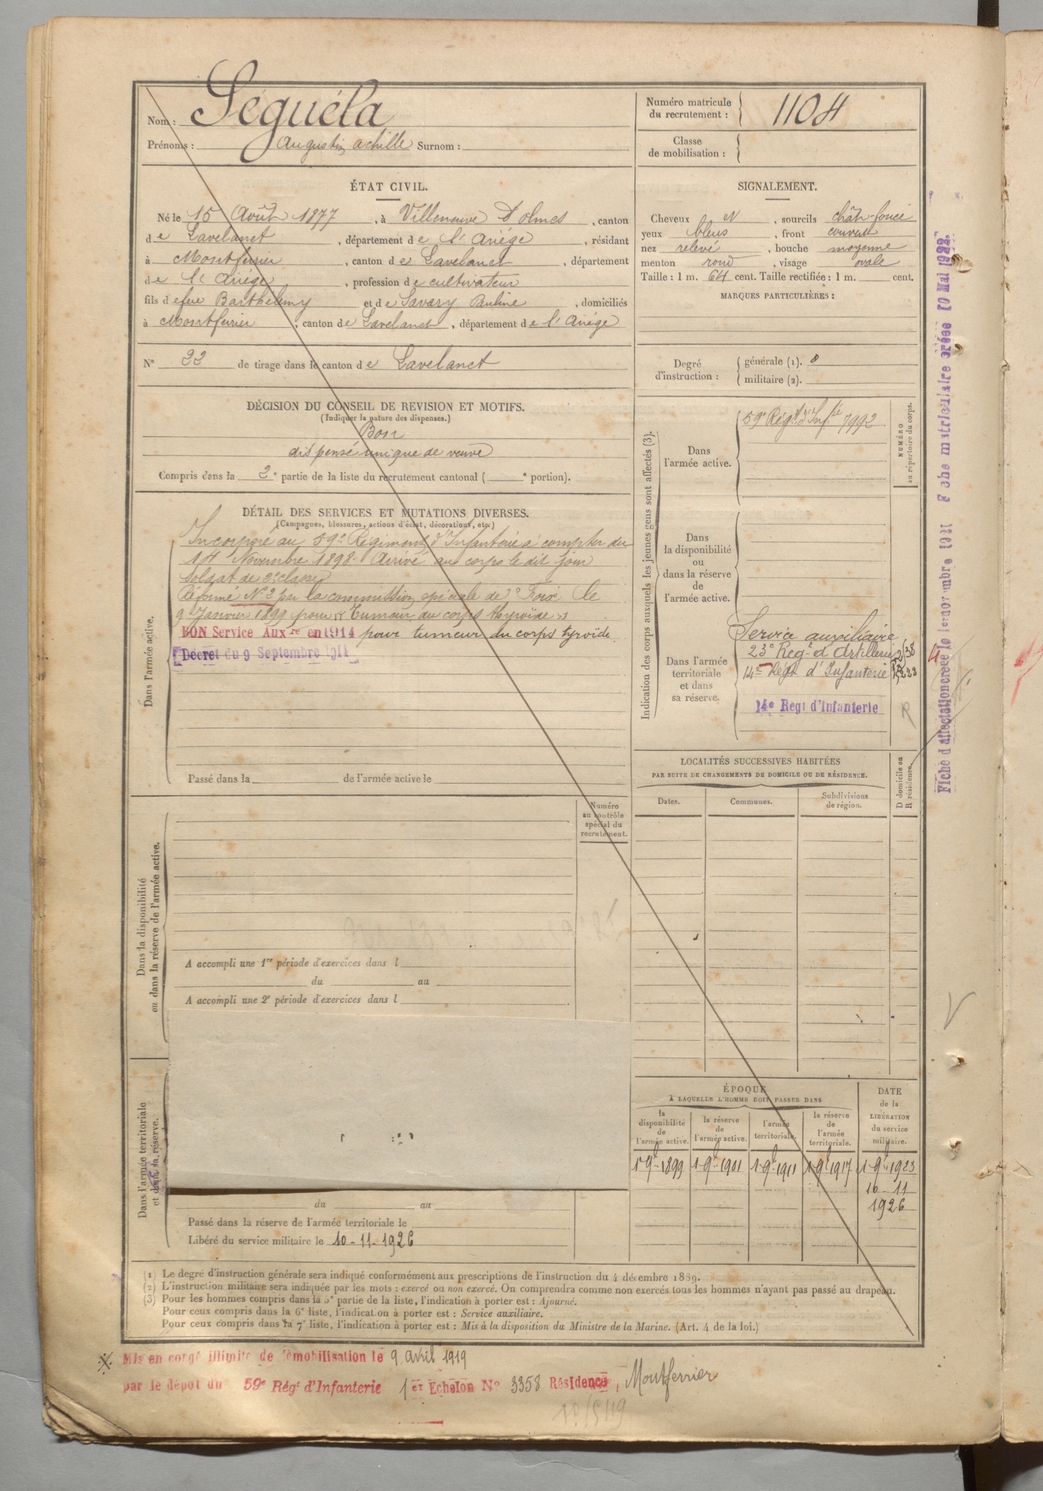 Nom : Séguéla
Prénoms : Augustin achille Surnom :
Numéro matricule du recrutement : 1104
Classe de mobilisation :
ÉTAT CIVIL.
Né le 15 Août 1877, à Villeneuve d'olmes, canton
de Lavelanet, département de l'Ariège, résidant
à Montferrier, canton de Lavelanet, département
de l'Ariège, profession de cultivateur
fils de feu Barthélemy et de Savary Pauline, domiciliés
à Montferrier, canton de Lavelanet, département de l'Ariège
N° 33 de tirage dans le canton de Lavelanet
SIGNALEMENT.
Cheveux N, sourcils chât-foncé
yeux bleus, front couvert
nez relevé, bouche moyenne
menton rond, visage ovale
Taille : 1 m. 64 cent. Taille rectifiée : 1 m. cent.
MARQUES PARTICULIÈRES :
Degré d'instruction : générale (1).
militaire (2).
DÉCISION DU CONSEIL DE REVISION ET MOTIFS.
(Indiquer la nature des dispenses.)
Bon
dispensé unique de veuve
Compris dans la 2e partie de la liste du recrutement cantonal ( e portion).
DÉTAIL DES SERVICES ET MUTATIONS DIVERSES.
(Campagnes, blessures, actions d'éclat, décorations, etc.)
Dans l'armée active.
Incorporé au 59e Régiment d'Infanterie à compter du
14 Novembre 1898. Arrivé au corps le dit jour
Soldat de 2e classe
Réformé N° 2 par la commission spéciale de Foix le
9 Janvier 1899 pour « Tumeur du corps thyroïde »
BON Service Auxre en 1914 pour tumeur du corps tyroïde
Décret du 9 Septembre 1914
Passé dans la de l'armée active le
Indication des corps auxquels les jeunes gens sont affectés (3).
NUMÉRO au répertoire du corps.
Dans l'armée active.
59e Régt d'Infie 7992
Dans la disponibilité ou dans la réserve de l'armée active.
Dans l'armée territoriale et dans sa réserve.
Service auxiliaire
23e Regt d'Artillerie
14e Régt d'Infanterie
14e Regt d'Infanterie
LOCALITÉS SUCCESSIVES HABITÉES
PAR SUITE DE CHANGEMENTS DE DOMICILE OU DE RÉSIDENCE.
Dates.
Communes.
Subdivisions de région.
D domicile ou R résidence.
Numéro au contrôle spécial du recrutement.
Dans la disponibilité ou dans la réserve de l'armée active.
A accompli une 1re période d'exercices dans l
du au
A accompli une 2e période d'exercices dans l
Dans l'armée territoriale et dans sa réserve.
du au
Passé dans la réserve de l'armée territoriale le
Libéré du service militaire le 10-11-1926
ÉPOQUE
À LAQUELLE L'HOMME DOIT PASSER DANS
la disponibilité de l'armée active.
la réserve de l'armée active.
l'armée territoriale.
la réserve de l'armée territoriale.
DATE de la LIBÉRATION du service militaire.
1-9e 1899
1-9e 1901
1-9e 1911
1-9e 1917
1-9e 1923
10-11
1926
(1) Le degré d'instruction générale sera indiqué conformément aux prescriptions de l'instruction du 4 décembre 1889.
(2) L'instruction militaire sera indiquée par les mots : exercé ou non exercé. On comprendra comme non exercés tous les hommes n'ayant pas passé au drapeau.
(3) Pour les hommes compris dans la 5e partie de la liste, l'indication à porter est : Ajourné.
Pour ceux compris dans la 6e liste, l'indication à porter est : Service auxiliaire.
Pour ceux compris dans la 7e liste, l'indication à porter est : Mis à la disposition du Ministre de la Marine. (Art. 4 de la loi.)
Mis en congé illimité de démobilisation le 9 avril 1919
par le dépôt du 59e Régt d'Infanterie 1er Echelon N° 3358 Résidence, Montferrier